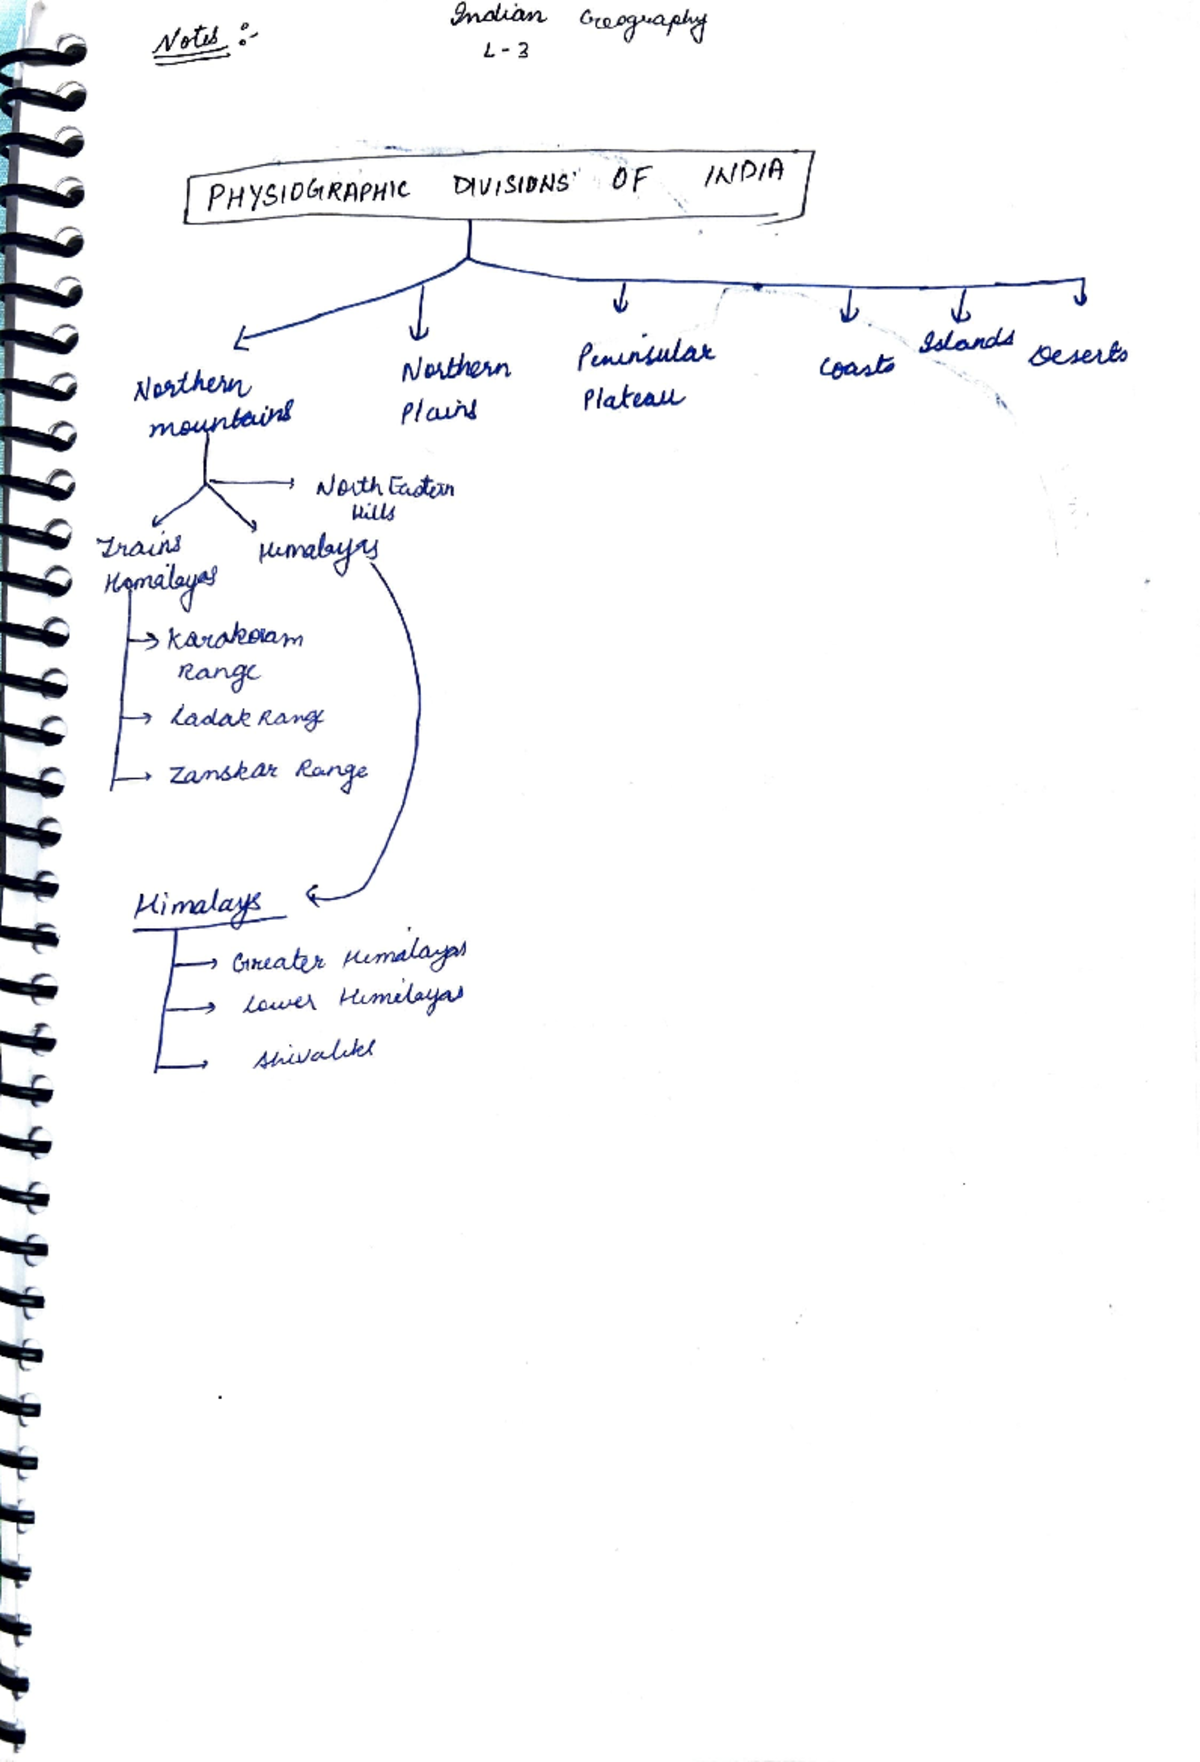 Indian Geography
Notes :-
L - 3
PHYSIOGRAPHIC DIVISIONS OF INDIA
Northern mountains
Northern Plains
Peninsular Plateau
Coasts
Islands
Deserts
North Eastern
Hills
Trains
Homalayas
Himalayas
Karakoram
Range
Ladak Range
Zanskar Range
Himalays
Greater Himalayas
Lower Himelayas
Shivalikl